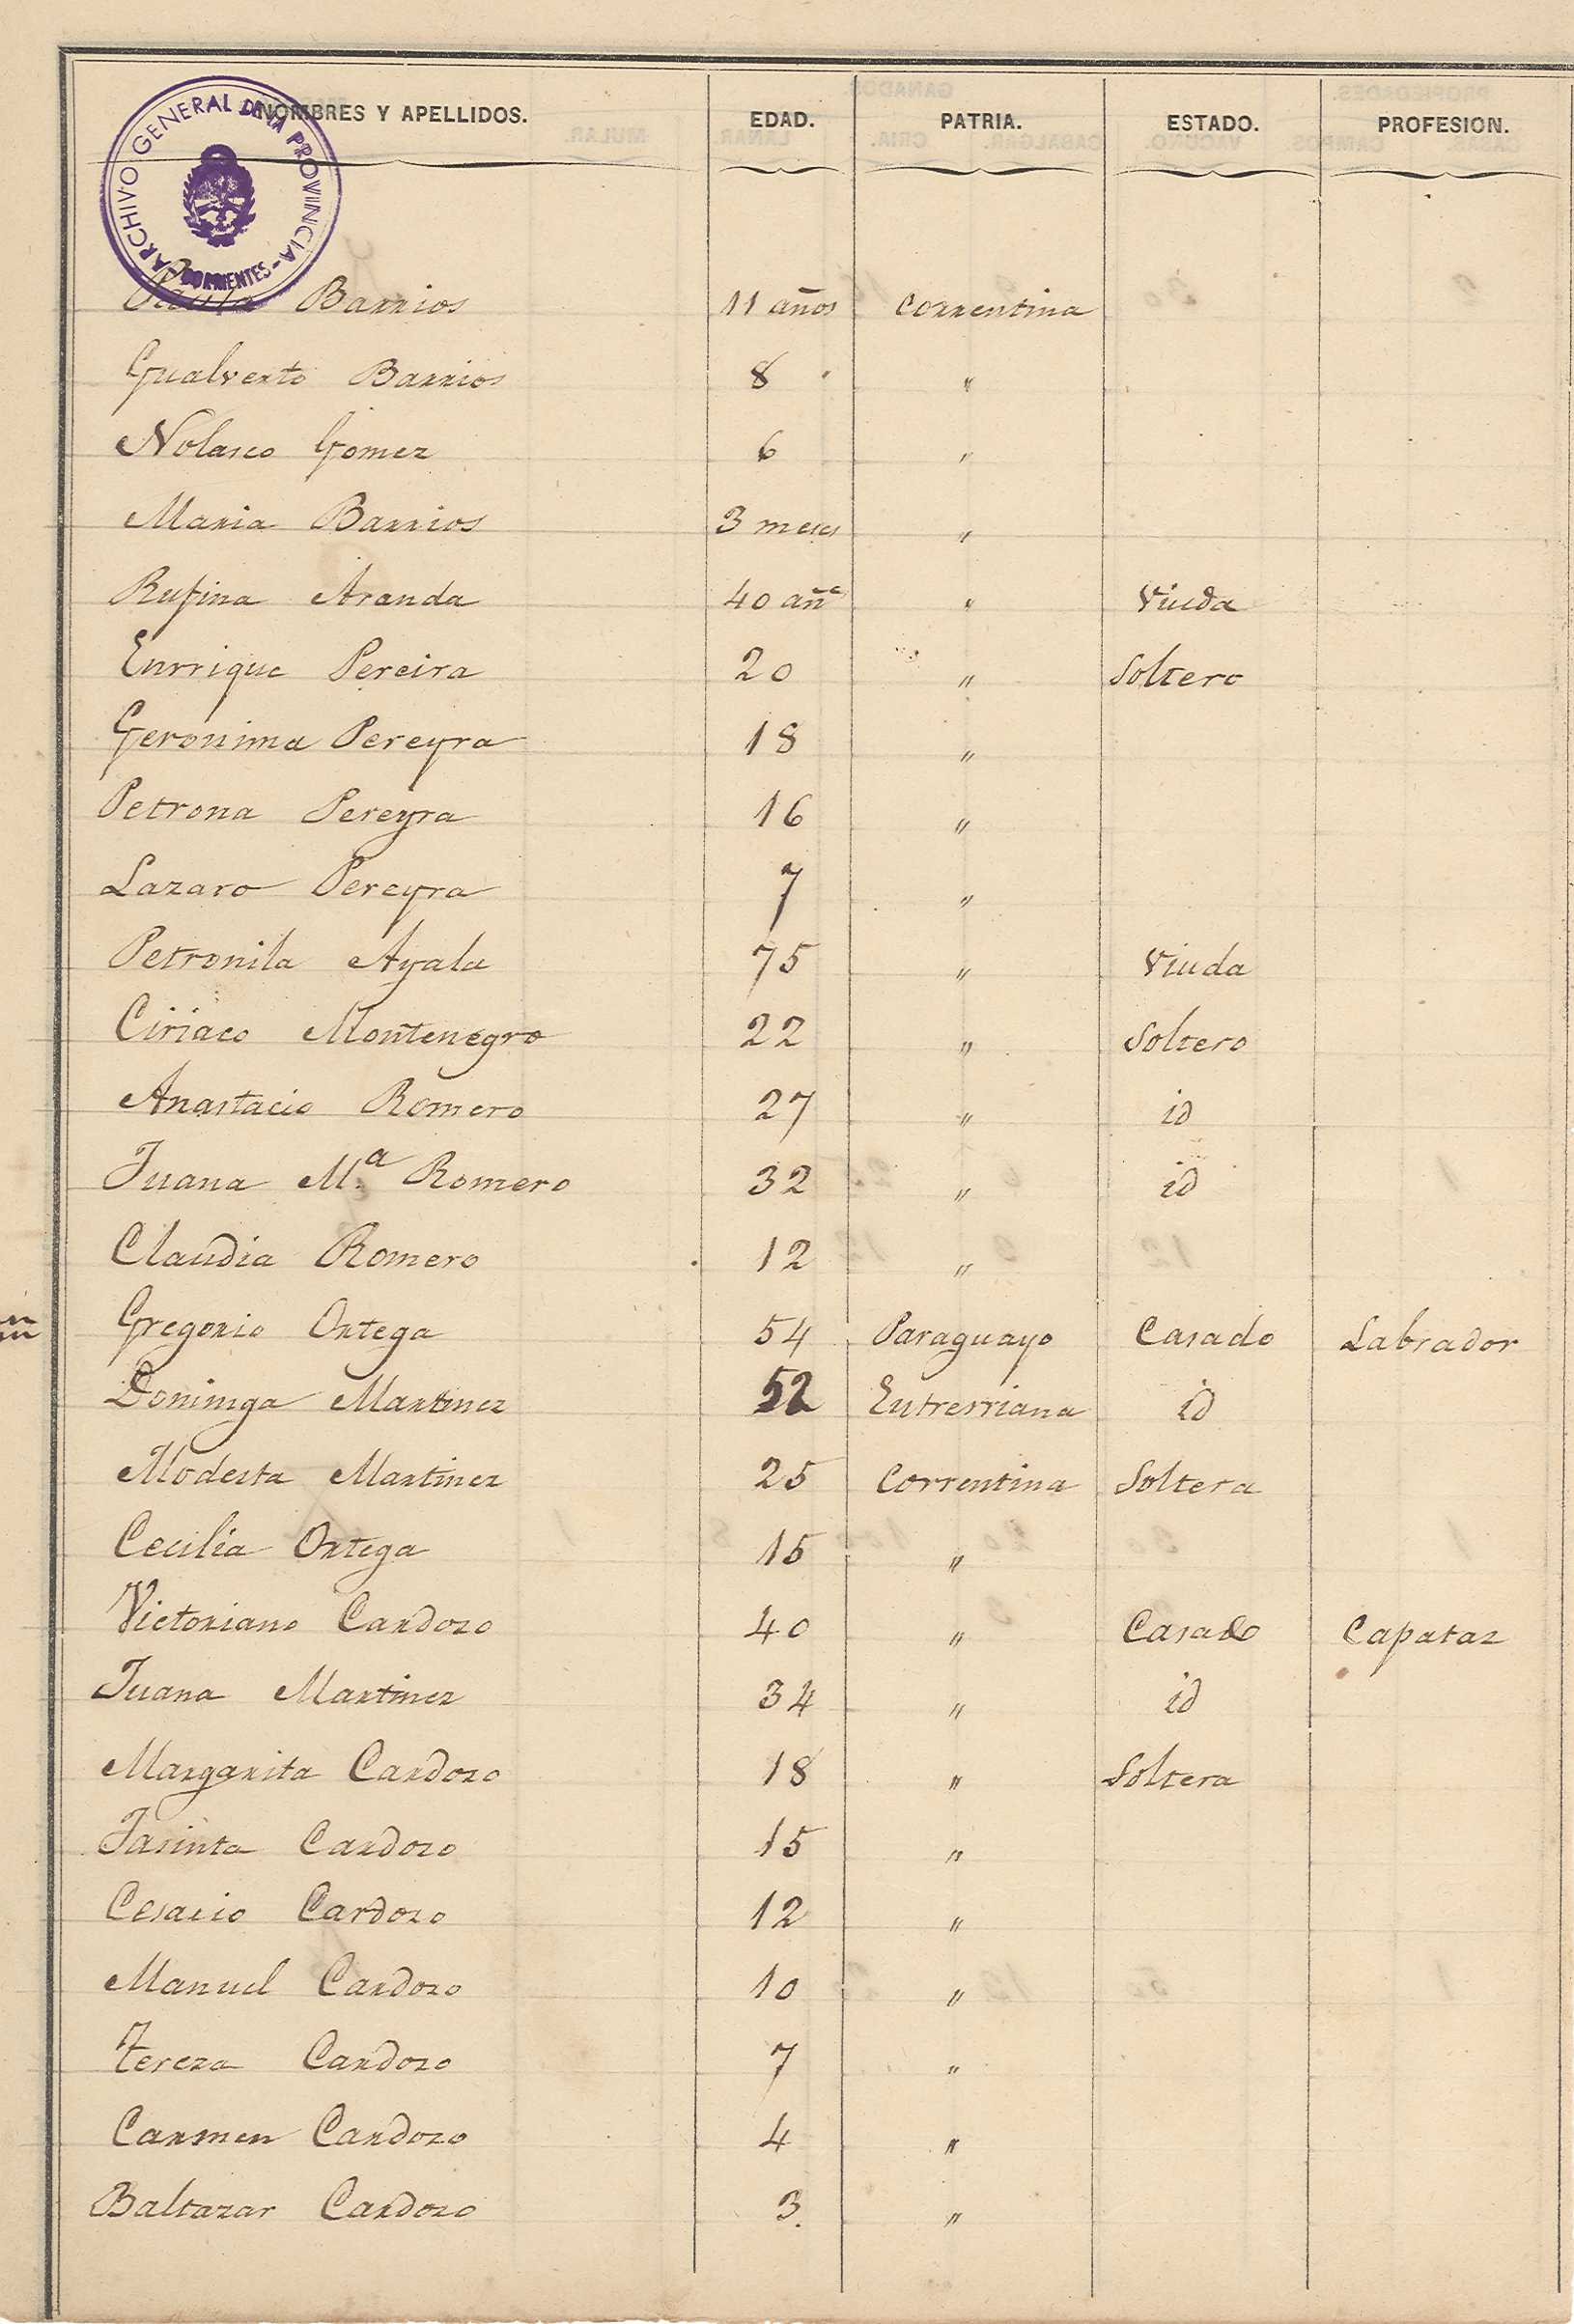 ARCHIVO GENERAL DE LA PROVINCIA - CORRIENTES -
NOMBRES Y APELLIDOS. EDAD. PATRIA. ESTADO. PROFESION.
Paula Barrios 11 años Correntina
Gualverto Barrios 8 "
Nolasco Gomez 6 "
Maria Barrios 3 meses "
Rufina Aranda 40 añs "
Viuda
Enrrique Pereira 20 " Soltero
Geronima Pereyra 18 "
Petrona Pereyra 16 "
Lazaro Pereyra 7 "
Petronila Ayala 75 " Viuda
Ciriaco Montenegro 22 " Soltero
Anastacio Romero 27 " id
Juana Mª Romero 32 " id
Claudia Romero 12 "
Gregorio Ortega 54 Paraguayo Casado Labrador
Dominga Martinez 52 Entrerriana id
Modesta Martinez 25 Correntina Soltera
Cecilia Ortega 15 "
Victoriano Cardozo 40 " Casado Capataz
Juana Martinez 34 " id
Margarita Cardozo 18 " Soltera
Jasinta Cardozo 15 "
Cesario Cardozo 12 "
Manuel Cardozo 10 "
Tereza Cardozo 7 "
Carmen Cardozo 4 "
Baltazar Cardozo 3. "